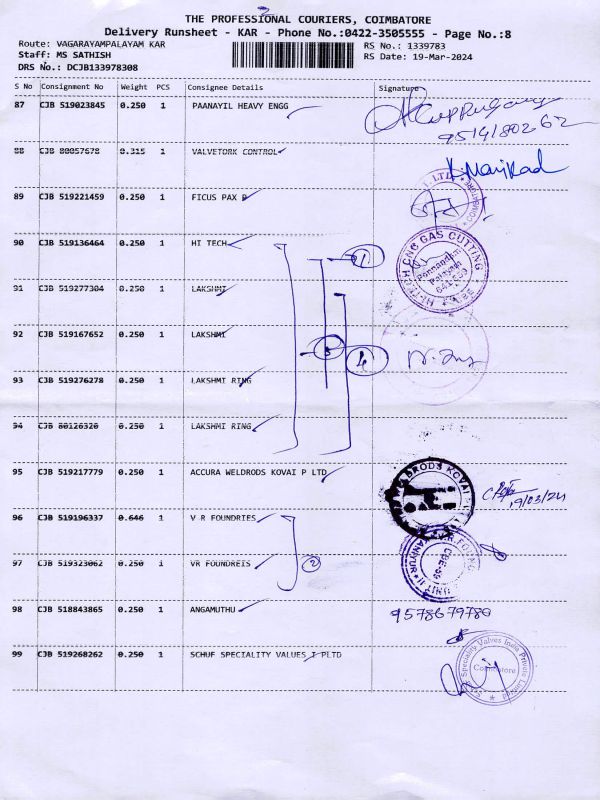 THE PROFESSIONAL COURIERS, COIMBATORE
Delivery Runsheet - KAR - Phone No.:0422-3505555 - Page No.:8
Route: VAGARAYAMPALAYAM KAR
RS No.: 1339783
Staff: MS SATHISH
RS Date: 19-Mar-2024
DRS No.: DCJB133978308
S No Consignment No Weight PCS Consignee Details Signature
87 CJB 519023845 0.250 1 PAANAYIL HEAVY ENGG
88 CJB 80057678 0.315 1 VALVETORK CONTROL
89 CJB 519221459 0.250 1 FICUS PAX P
90 CJB 519136464 0.250 1 HI TECH
HI-TECH CNC GAS CUTTING
91 CJB 519277304 0.250 1 LAKSHMI
92 CJB 519167652 0.250 1 LAKSHMI
3 4
93 CJB 519276278 0.250 1 LAKSHMI RING
94 CJB 80126320 0.250 1 LAKSHMI RING
95 CJB 519217779 0.250 1 ACCURA WELDRODS KOVAI P LTD
19/03/24
96 CJB 519196337 0.646 1 V R FOUNDRIES
97 CJB 519323062 0.250 1 VR FOUNDREIS 2
98 CJB 518843865 0.250 1 ANGAMUTHU 9578679780
99 CJB 519268262 0.250 1 SCHUF SPECIALITY VALUES I PLTD
Speciality Valves India Private Limited
Coimbatore